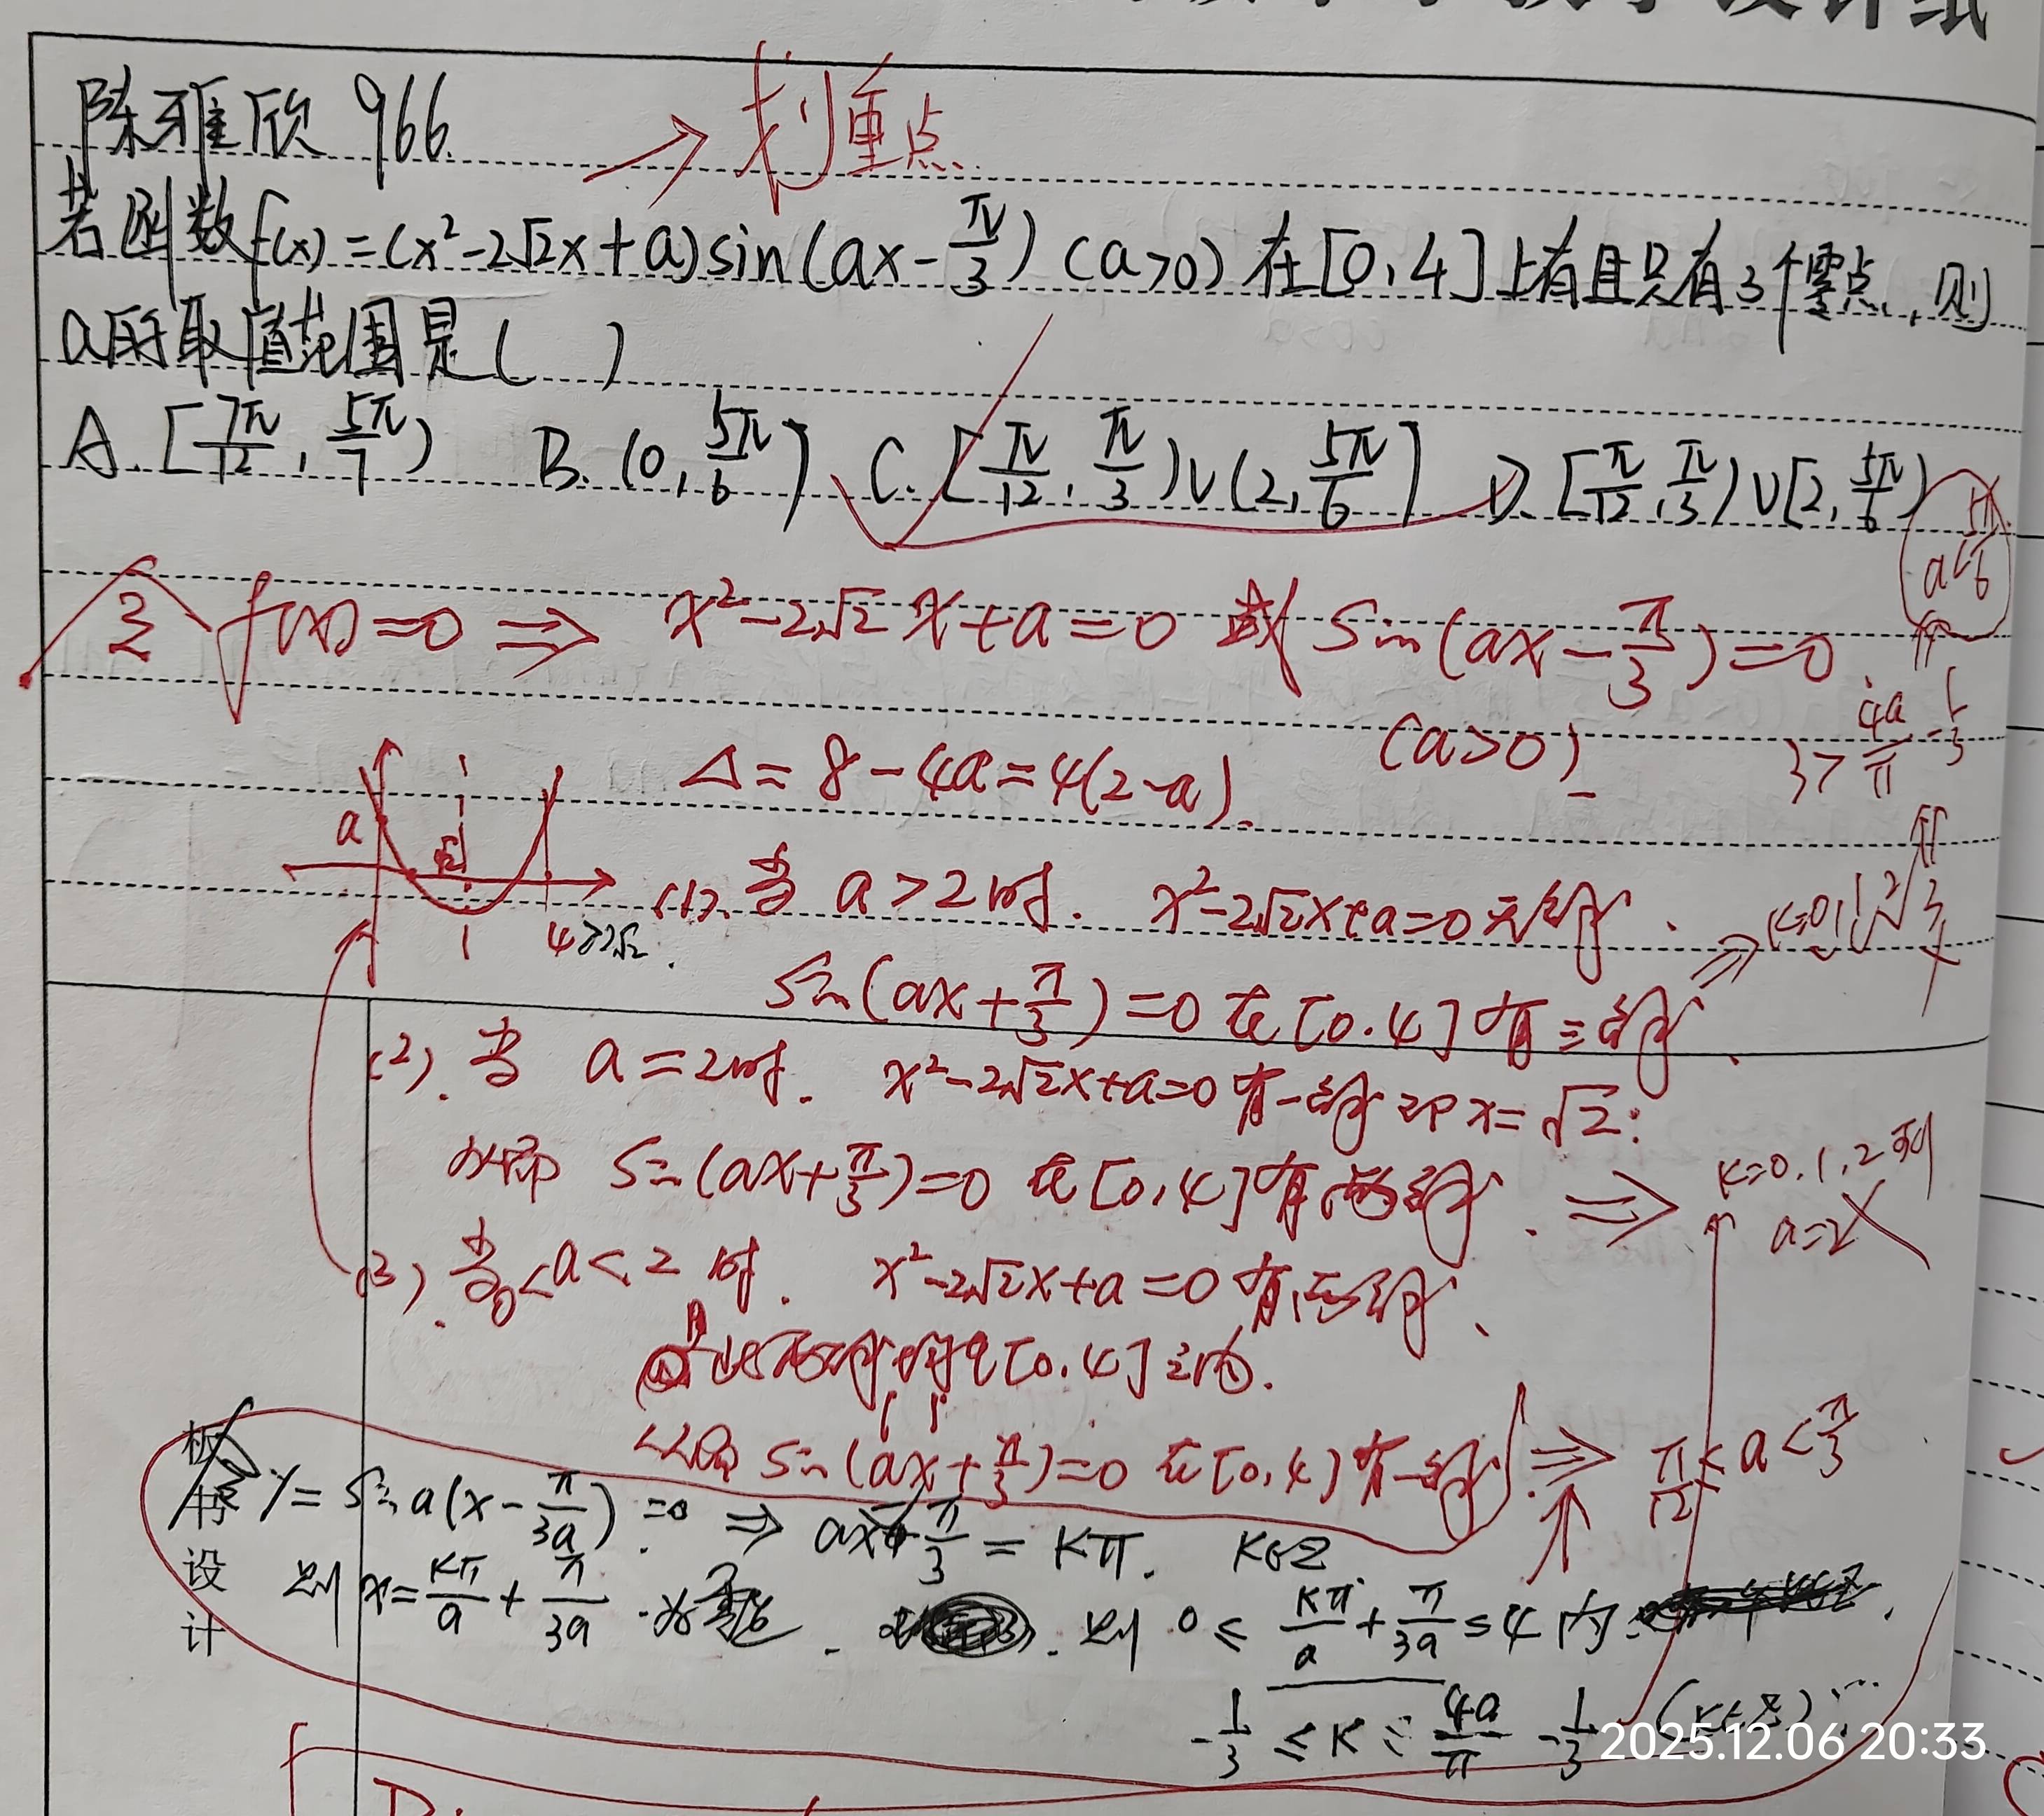 陈雅欣 966
→ 划重点
若函数f(x)=(x²-2√2x+a)sin(ax-π/3)(a>0)在[0,4]上有且只有3个零点,则
a的取值范围是( )
A.[7π/12,5π/7) B.(0,5π/6] C.[π/12,π/3)∪(2,5π/6] D.[π/12,π/3)∪[2,5π/6)
a<5π/6
令 f(x)=0 ⇒ x²-2√2x+a=0 或 sin(ax-π/3)=0.
(a>0)
3>4a/π-1/3
Δ=8-4a=4(2-a).
a √2 4>2√2
(1).当 a>2时. x²-2√2x+a=0无解.
sin(ax+π/3)=0在[0.4]有三解 ⇒ k=0,1,2 3
(2).当 a=2时. x²-2√2x+a=0有一解 即x=√2;
sin(ax+π/3)=0 在[0,4]有两解. ⇒ k=0,1,2则
a=2
(3).当0<a<2时. x²-2√2x+a=0有两解.
[0.4]
sin(ax+π/3)=0 在[0,4]有一解 ⇒ π/12≤a<π/3
板书设计
y=sin a(x-π/3a)=0 ⇒ ax-π/3=kπ. k∈Z
则x=kπ/a+π/3a 为零点. 则 0≤kπ/a+π/3a≤4 内
-1/3≤k≤4a/π-1/3 (k∈Z)
2025.12.06 20:33